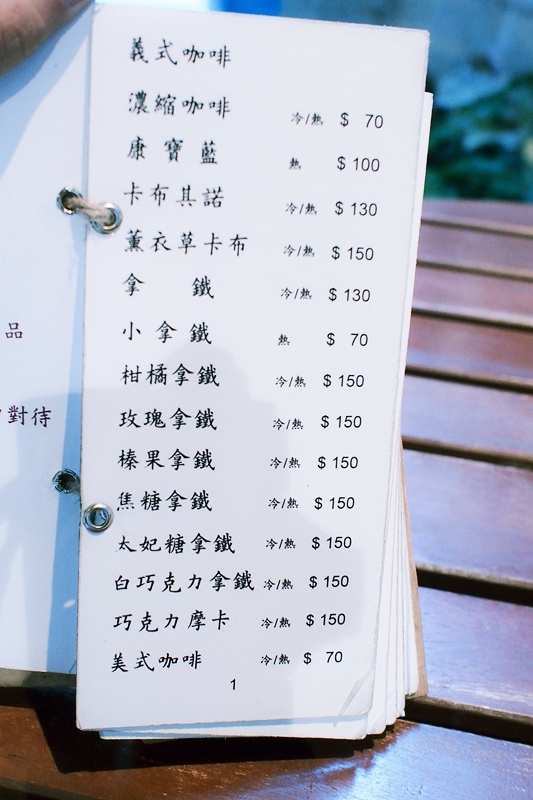 品
對待
義式咖啡
濃縮咖啡 冷/熱 $ 70
康寶藍 熱 $ 100
卡布其諾 冷/熱 $ 130
薰衣草卡布 冷/熱 $ 150
拿 鐵 冷/熱 $ 130
小拿鐵 熱 $ 70
柑橘拿鐵 冷/熱 $ 150
玫瑰拿鐵 冷/熱 $ 150
榛果拿鐵 冷/熱 $ 150
焦糖拿鐵 冷/熱 $ 150
太妃糖拿鐵 冷/熱 $ 150
白巧克力拿鐵 冷/熱 $ 150
巧克力摩卡 冷/熱 $ 150
美式咖啡 冷/熱 $ 70
1